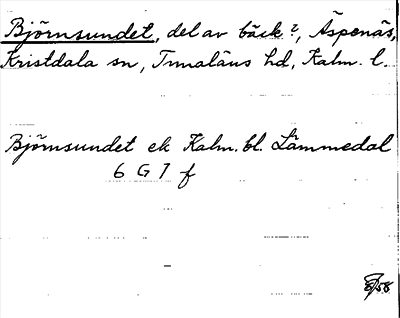 Björnsundet, del av bäck?, Äspenäs,
Kristdala sn, Tunaläns hd, Kalm. l.
Björnsundet ek Kalm. bl. Lämmedal
6 G 7 f